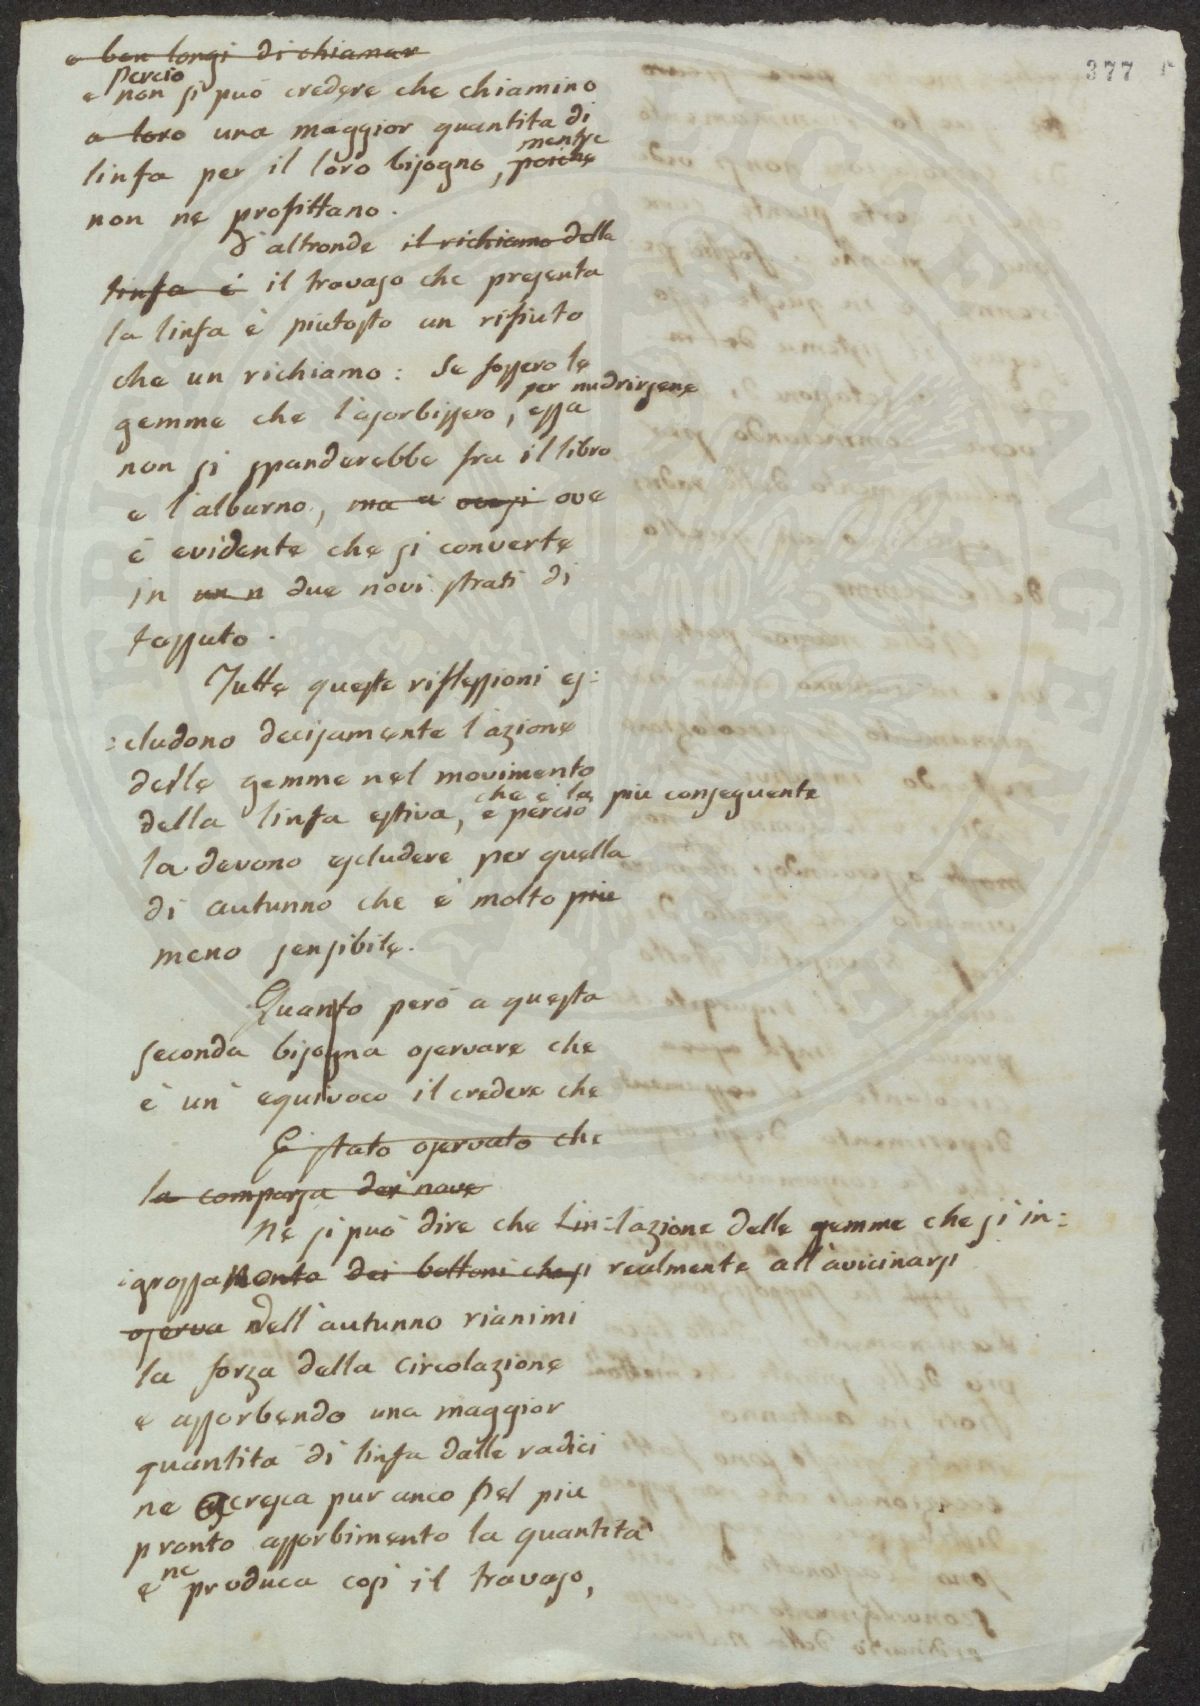 377 r
e ben longi di chiamar
perciò
e non si può credere che chiamino
a loro una maggior quantita di
mentre
linfa per il loro bisogno, poiche
non ne profittano.
d'altronde il richiamo della
linfa è il travaso che presenta
la linfa è piutosto un rifiuto
che un richiamo: Se fossero le
per nudrirsene
gemme che l'asorbissero, essa
non si spanderebbe fra il libro
e l'alburno, ma a ove
è evidente che si converte
in un n due novi strati di
tessuto.
Tutte queste riflessioni es:
:cludono decisamente l'azione
delle gemme nel movimento
che è la più conseguente
della linfa estiva, e perciò
la devono escludere per quella
di autunno che è molto più
meno sensibile.
Quanto però a questa
seconda bisogna oservare che
è un' equivoco il credere che
È stato oservato che
la comparsa dei nove
Ne si può dire che l'in:l'azione delle gemme che si in:
:grossamento dei bottoni che si realmente all'avicinarsi
oserva dell'autunno rianimi
la forza della circolazione
e assorbendo una maggior
quantita di linfa dalle radici
ne acresca pur anco pel più
pronto assorbimento la quantità
ne
e produca così il travaso,